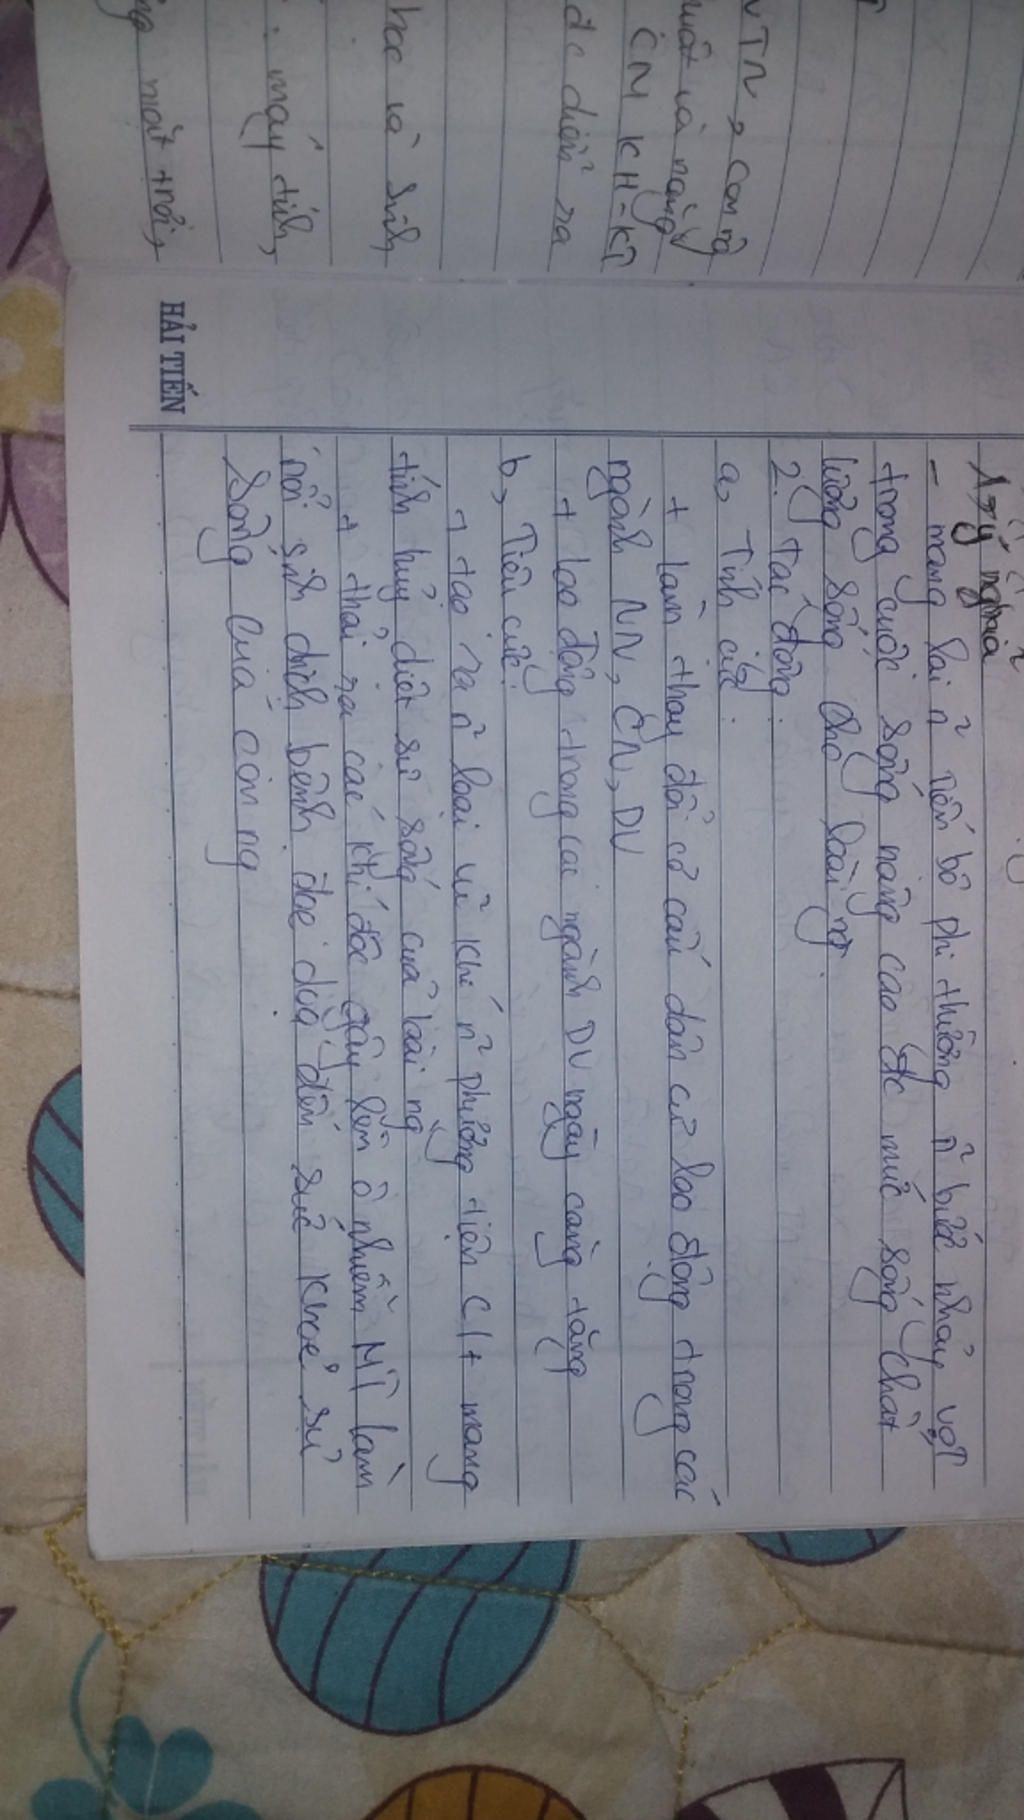 VTN, con ng
suất và năng
CM KH-KT
đc diễn ra
học và sinh
: máy tính,
ng mặt trời,
HẢI TIẾN
1, ý nghĩa
- mang lại n~ tiến bộ phi thường n~ bước nhảy vọt
trong cuộc sống nâng cao đc mức sống chất
lượng sống cho loài ng
2. Tác động:
a, Tích cực:
+ làm thay đổi cơ cấu dân cư lao động trong các
ngành NN, CN, DV
+ lao động trong các ngành DV ngày càng tăng
b, Tiêu cực:
+ tạo ra n~ loại vũ khí n~ phương tiện Ct mang
tính huỷ diệt sự sống của loài ng
+ thải ra các khí độc gây lên ô nhiễm MT làm
nổi sinh dịch bệnh đoe doạ đến sức khoẻ sự
sống của con ng